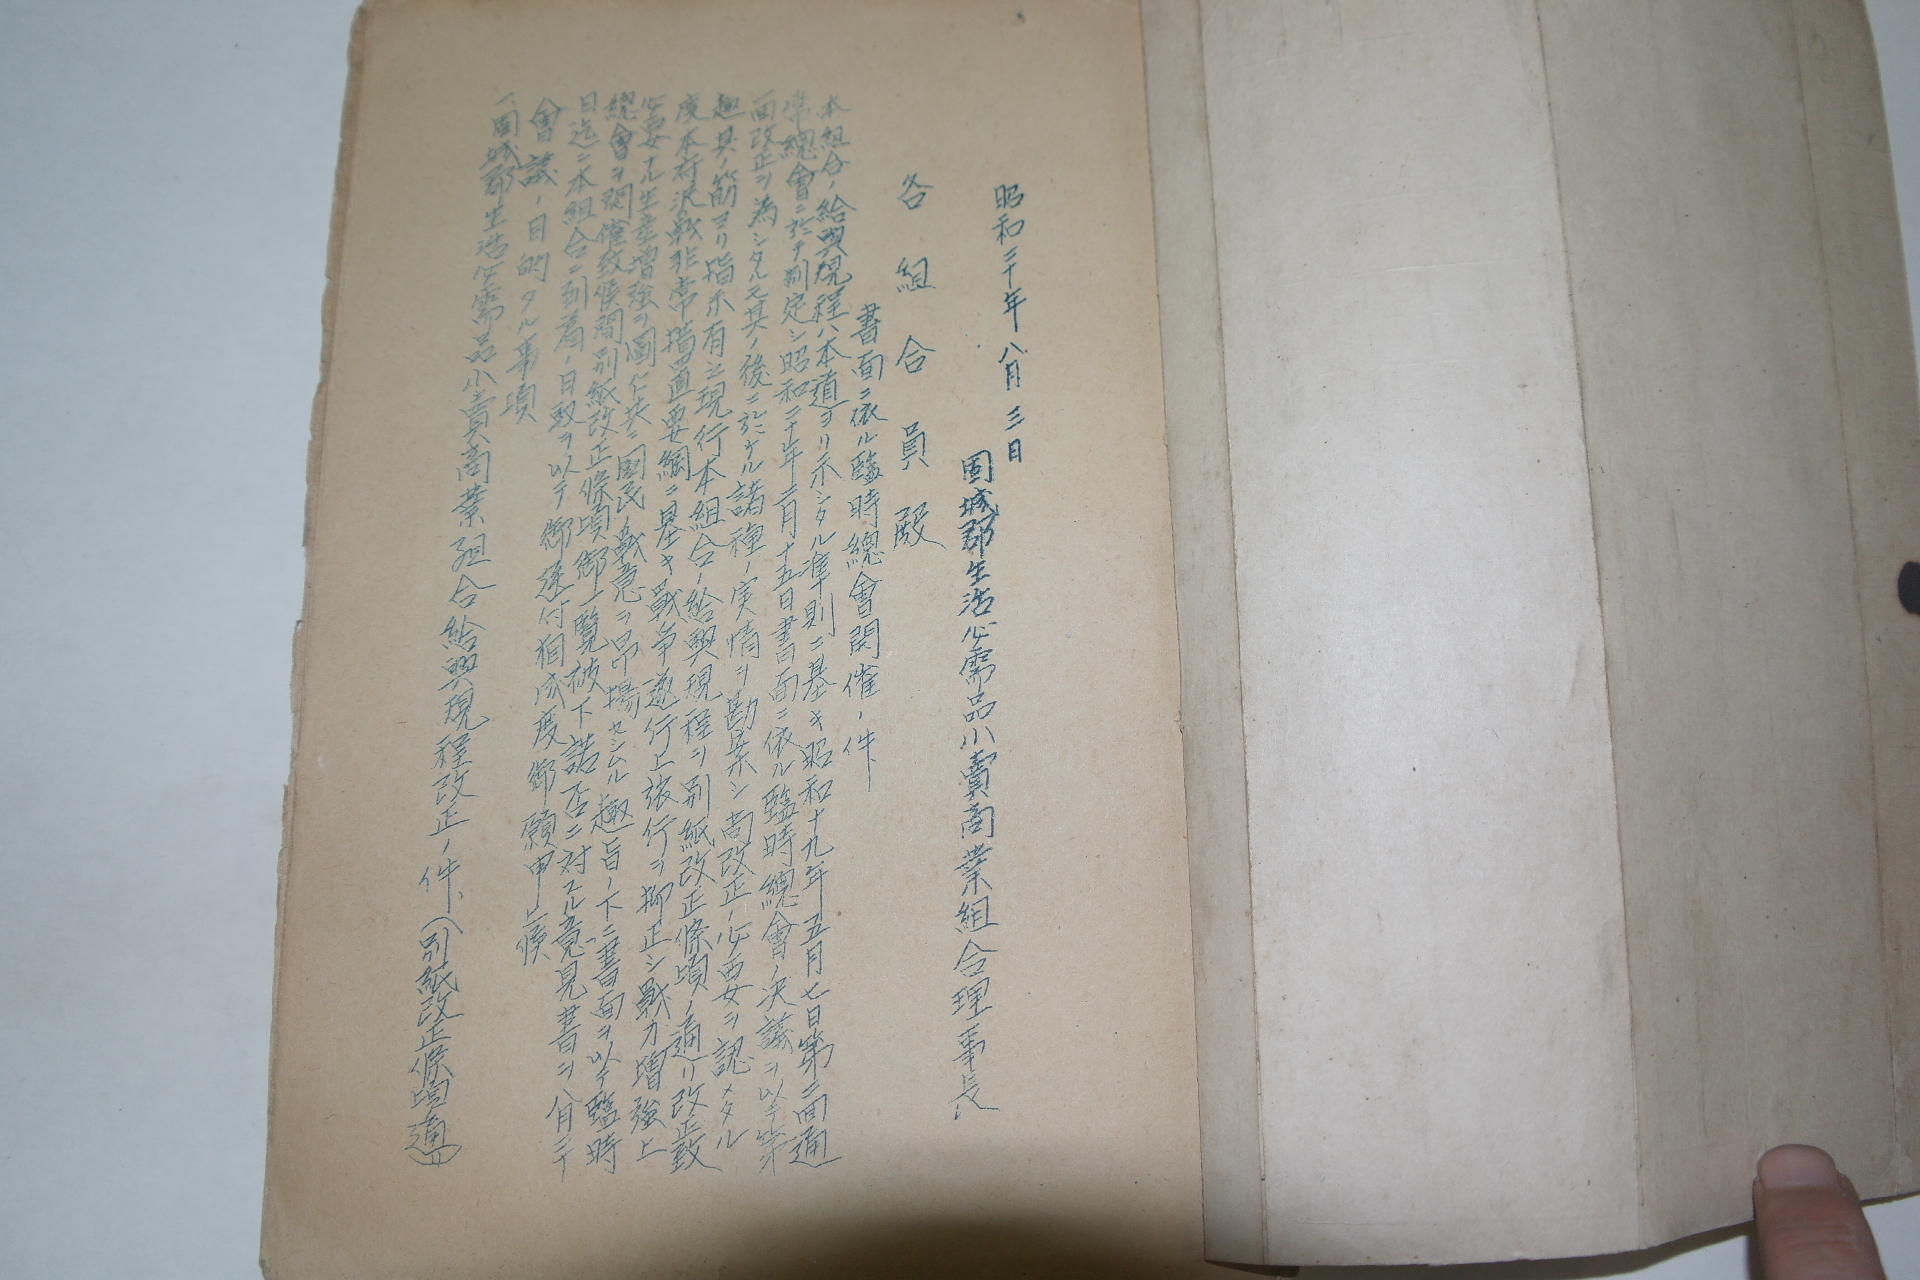 昭和二十年八月三日
固城郡生活必需品小賣商業組合理事長
各組合員殿
書面ニ依ル臨時總會開催ノ件
本組合ノ給與規程ハ本道ヨリ示シタル準則ニ基キ昭和十九年五月七日第二回通
常總會ニ於テ制定シ昭和二十年二月十五日書面ニ依ル臨時總會ノ決議ヲ以テ第
一回改正ヲ為シタルモ其ノ後ニ於ケル諸種ノ実情ヲ勘案シ尚改正ノ必要ヲ認メタル
趣其ノ筋ヨリ指示有之現行本組合ノ給與規程ヲ別紙改正條項ノ通リ改正致
度本府決戰非常措置要綱ニ基キ戰爭遂行上旅行ヲ抑正シ戰力增強上
必要ナル生産増強ヲ圖ルト共ニ國民ノ戰意ヲ昂揚セシムル趣旨ノ下ニ書面ヲ以テ臨時
總會ヲ開催致候間別紙改正條項御一覽被下諾否ニ対スル意見書ヲ八月二十
日迄ニ本組合ニ到着ノ日取ヲ以テ御送付相成度御願申上候
會議ノ目的タル事項
一、固城郡生活必需品小賣商業組合給與規程改正ノ件、(別紙改正條項通リ)